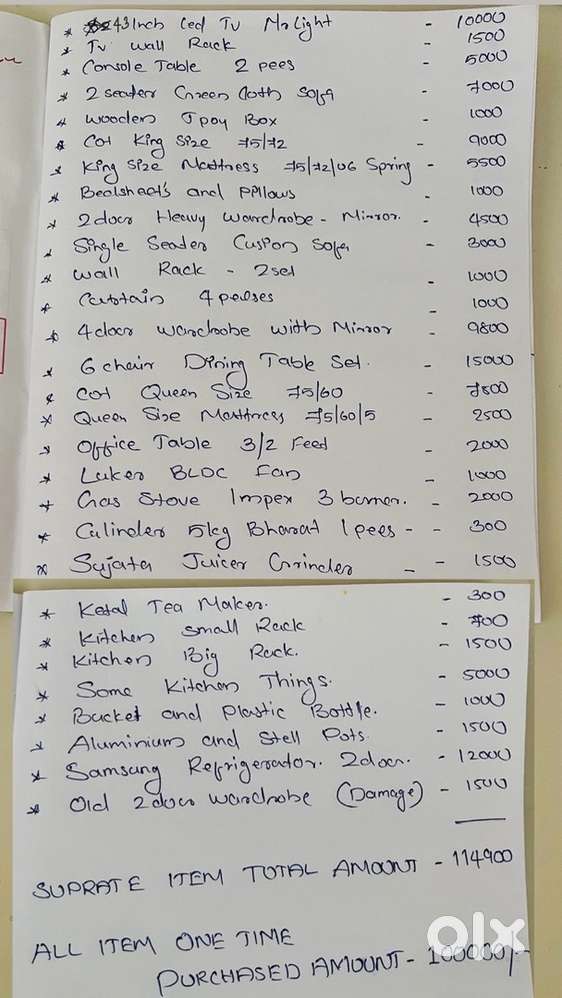 * 43 Inch Led Tv MrLight - 10000
* Tv Wall Rack - 1500
* Console Table 2 pees - 5000
* 2 seater Green Cloth Sofa - 7000
* Wooden Tpoy Box - 1000
* Cot King Size 75/72 - 9000
* King Size Mattress 75/72/06 Spring - 5500
* Bedsheet's and Pillows - 1000
* 2 door Heavy wardrobe - Mirror. - 4500
* Single Seater Cusion Sofa - 3000
* Wall Rack - 2 set - 1000
* Curtain 4 peases - 1000
* 4 door wardrobe with Mirror - 9800
* 6 chair Dining Table Set. - 15000
* Cot Queen Size 75/60 - 7500
* Queen Size Mattress 75/60/5 - 2500
* Office Table 3/2 Feed - 2000
* Luker BLDC Fan - 1000
* Gas Stove Impex 3 burner. - 2000
* Culinder 5kg Bharat 1 pees - - 300
* Sujata Juicer Grinder - - 1500
* Ketal Tea Maker. - 300
* Kitchen Small Rack - 700
* Kitchen Big Rack. - 1500
* Some Kitchen Things. - 5000
* Bucket and Plastic Bottle. - 1000
* Aluminium and Stell Pots. - 1500
* Samsung Refrigerator. 2 door. - 12000
* Old 2 door wardrobe (Damage) - 1500
SUPRATE ITEM TOTAL AMOUNT - 114900
ALL ITEM ONE TIME
PURCHASED AMOUNT - 100000/-
olx